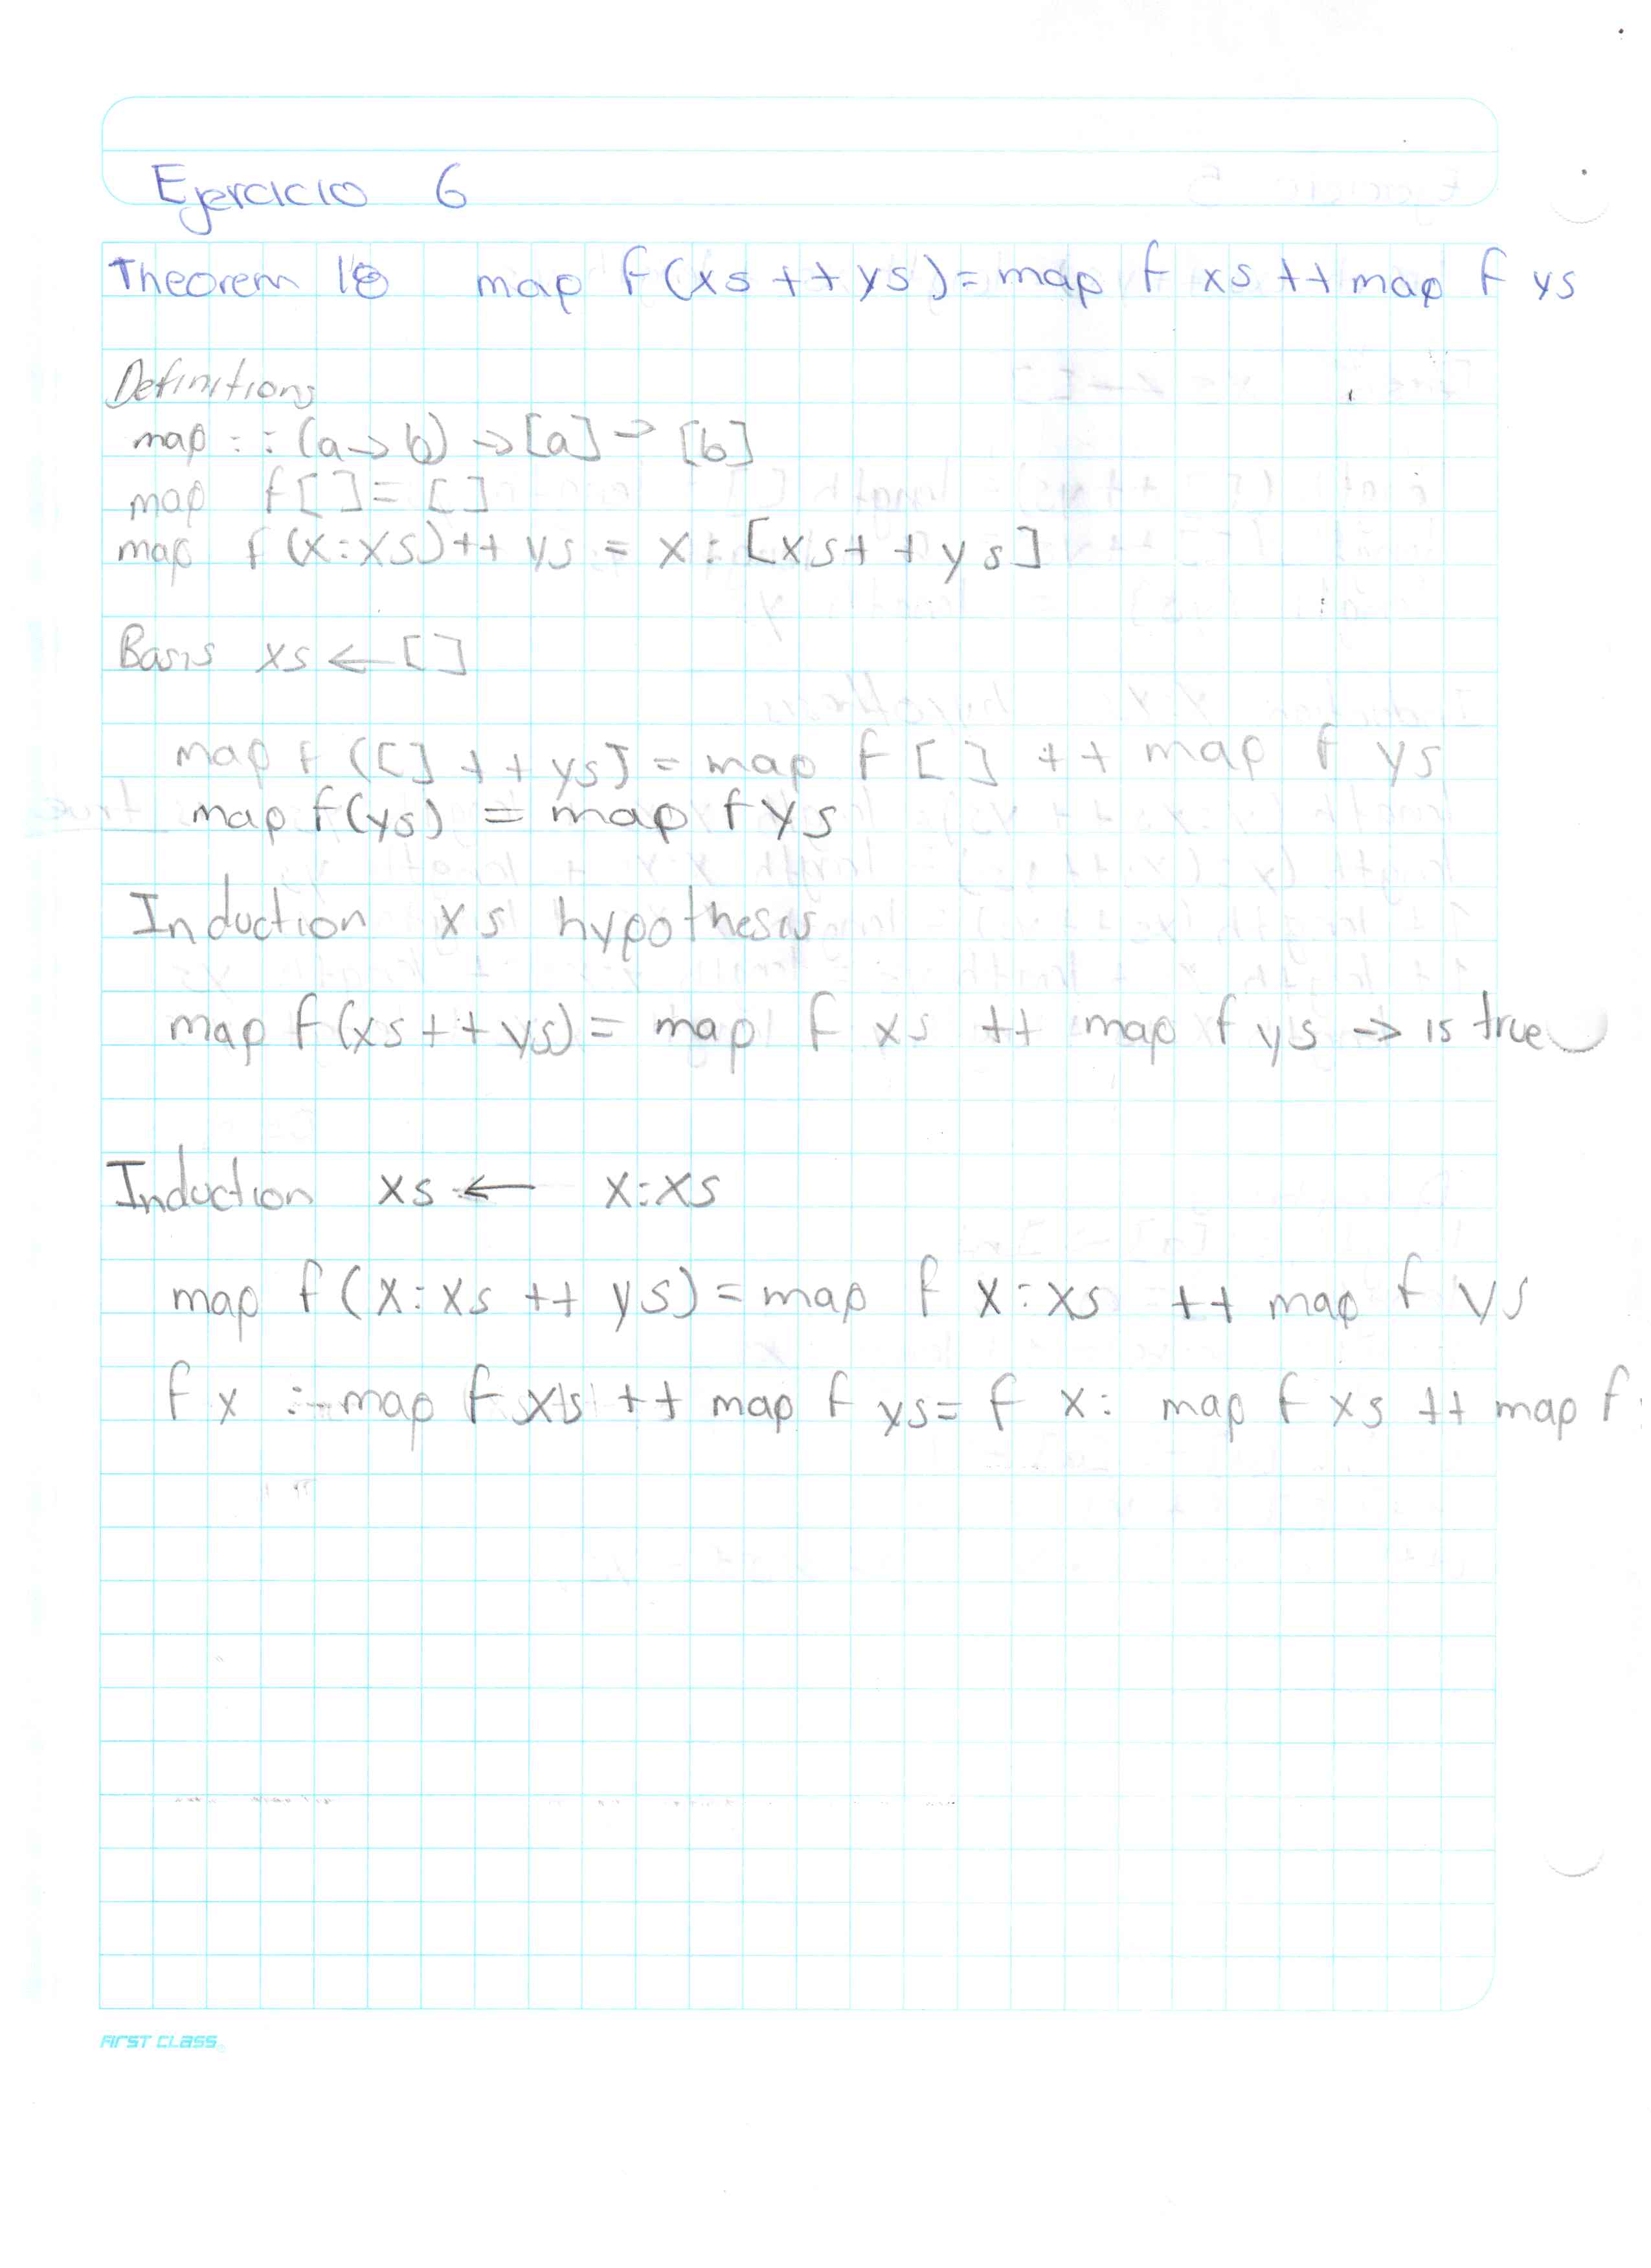 Ejercicio 6
Theorem 18 map f(xs ++ ys) = map f xs ++ map f ys
Definitions
map :: (a->b) -> [a] -> [b]
map f[] = []
map f(x:xs)++ ys = x: [xs++ys]
Basis xs <- []
map f ([] ++ ys] = map f [] ++ map f ys
map f(ys) = map f ys
Induction xs hypothesis
map f(xs ++ ys) = map f xs ++ map f ys -> is true
Induction xs <- x:xs
map f(x:xs ++ ys) = map f x:xs ++ map f ys
f x : map f xs ++ map f ys = f x: map f xs ++ map f
FIRST CLASS